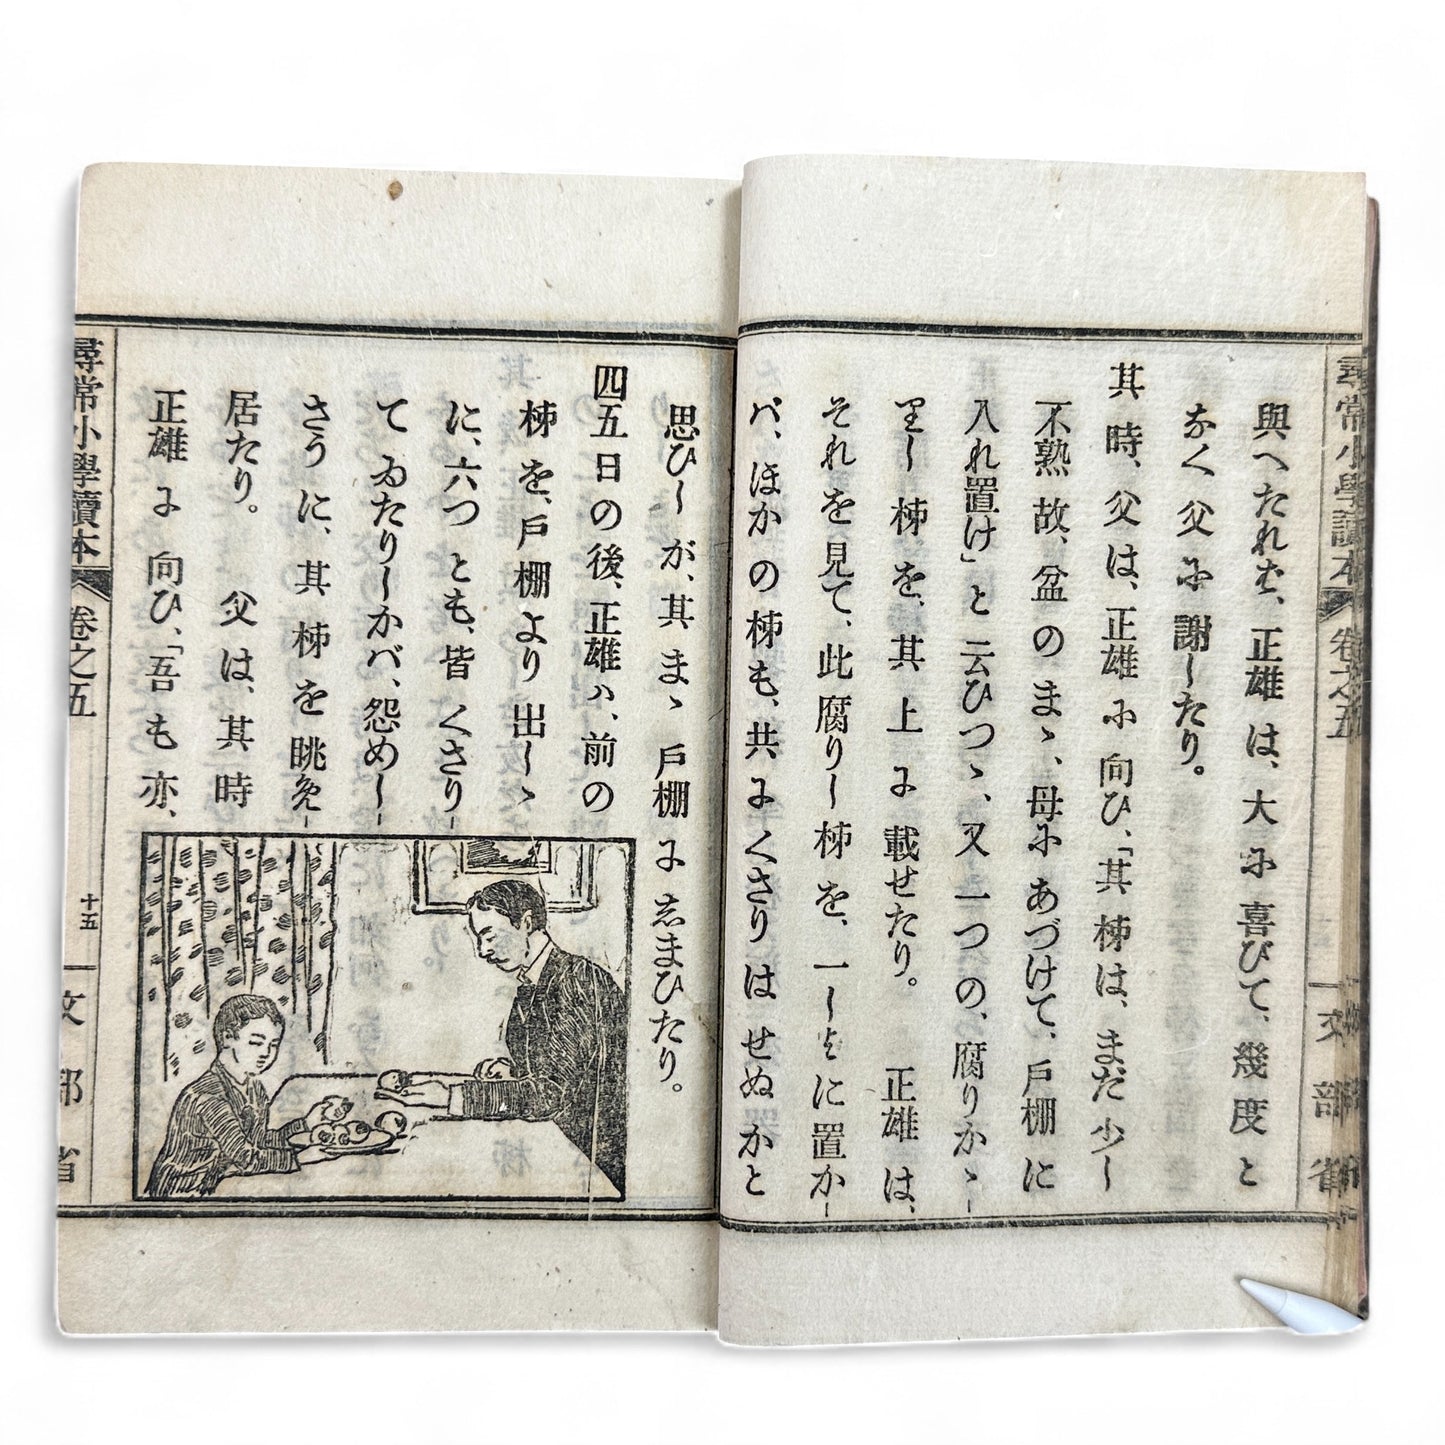 尋常小學讀本 卷之五 文部省
與へたれば、正雄は、大に喜びて、幾度と
なく父に謝したり。
其時、父は、正雄に向ひ、「其柹は、まだ少し
不熟故、盆のまゝ、母にあづけて、戶棚に
入れ置け」と云ひつゝ、又一つの、腐りかゝし
りし柹を、其上に載せたり。 正雄は、
それを見て、此腐りし柹を、一しよに置か
バ、ほかの柹も、共にくさりはせぬかと
思ひしが、其まゝ戶棚にしまひたり。
四五日の後、正雄ハ、前の
柹を、戶棚より出しゝ
に、六つとも、皆くさり
てゐたりしかバ、怨めし
さうに、其柹を眺め
居たり。 父は、其時
正雄に向ひ、「吾も亦、
尋常小學讀本 卷之五 十五 文部省